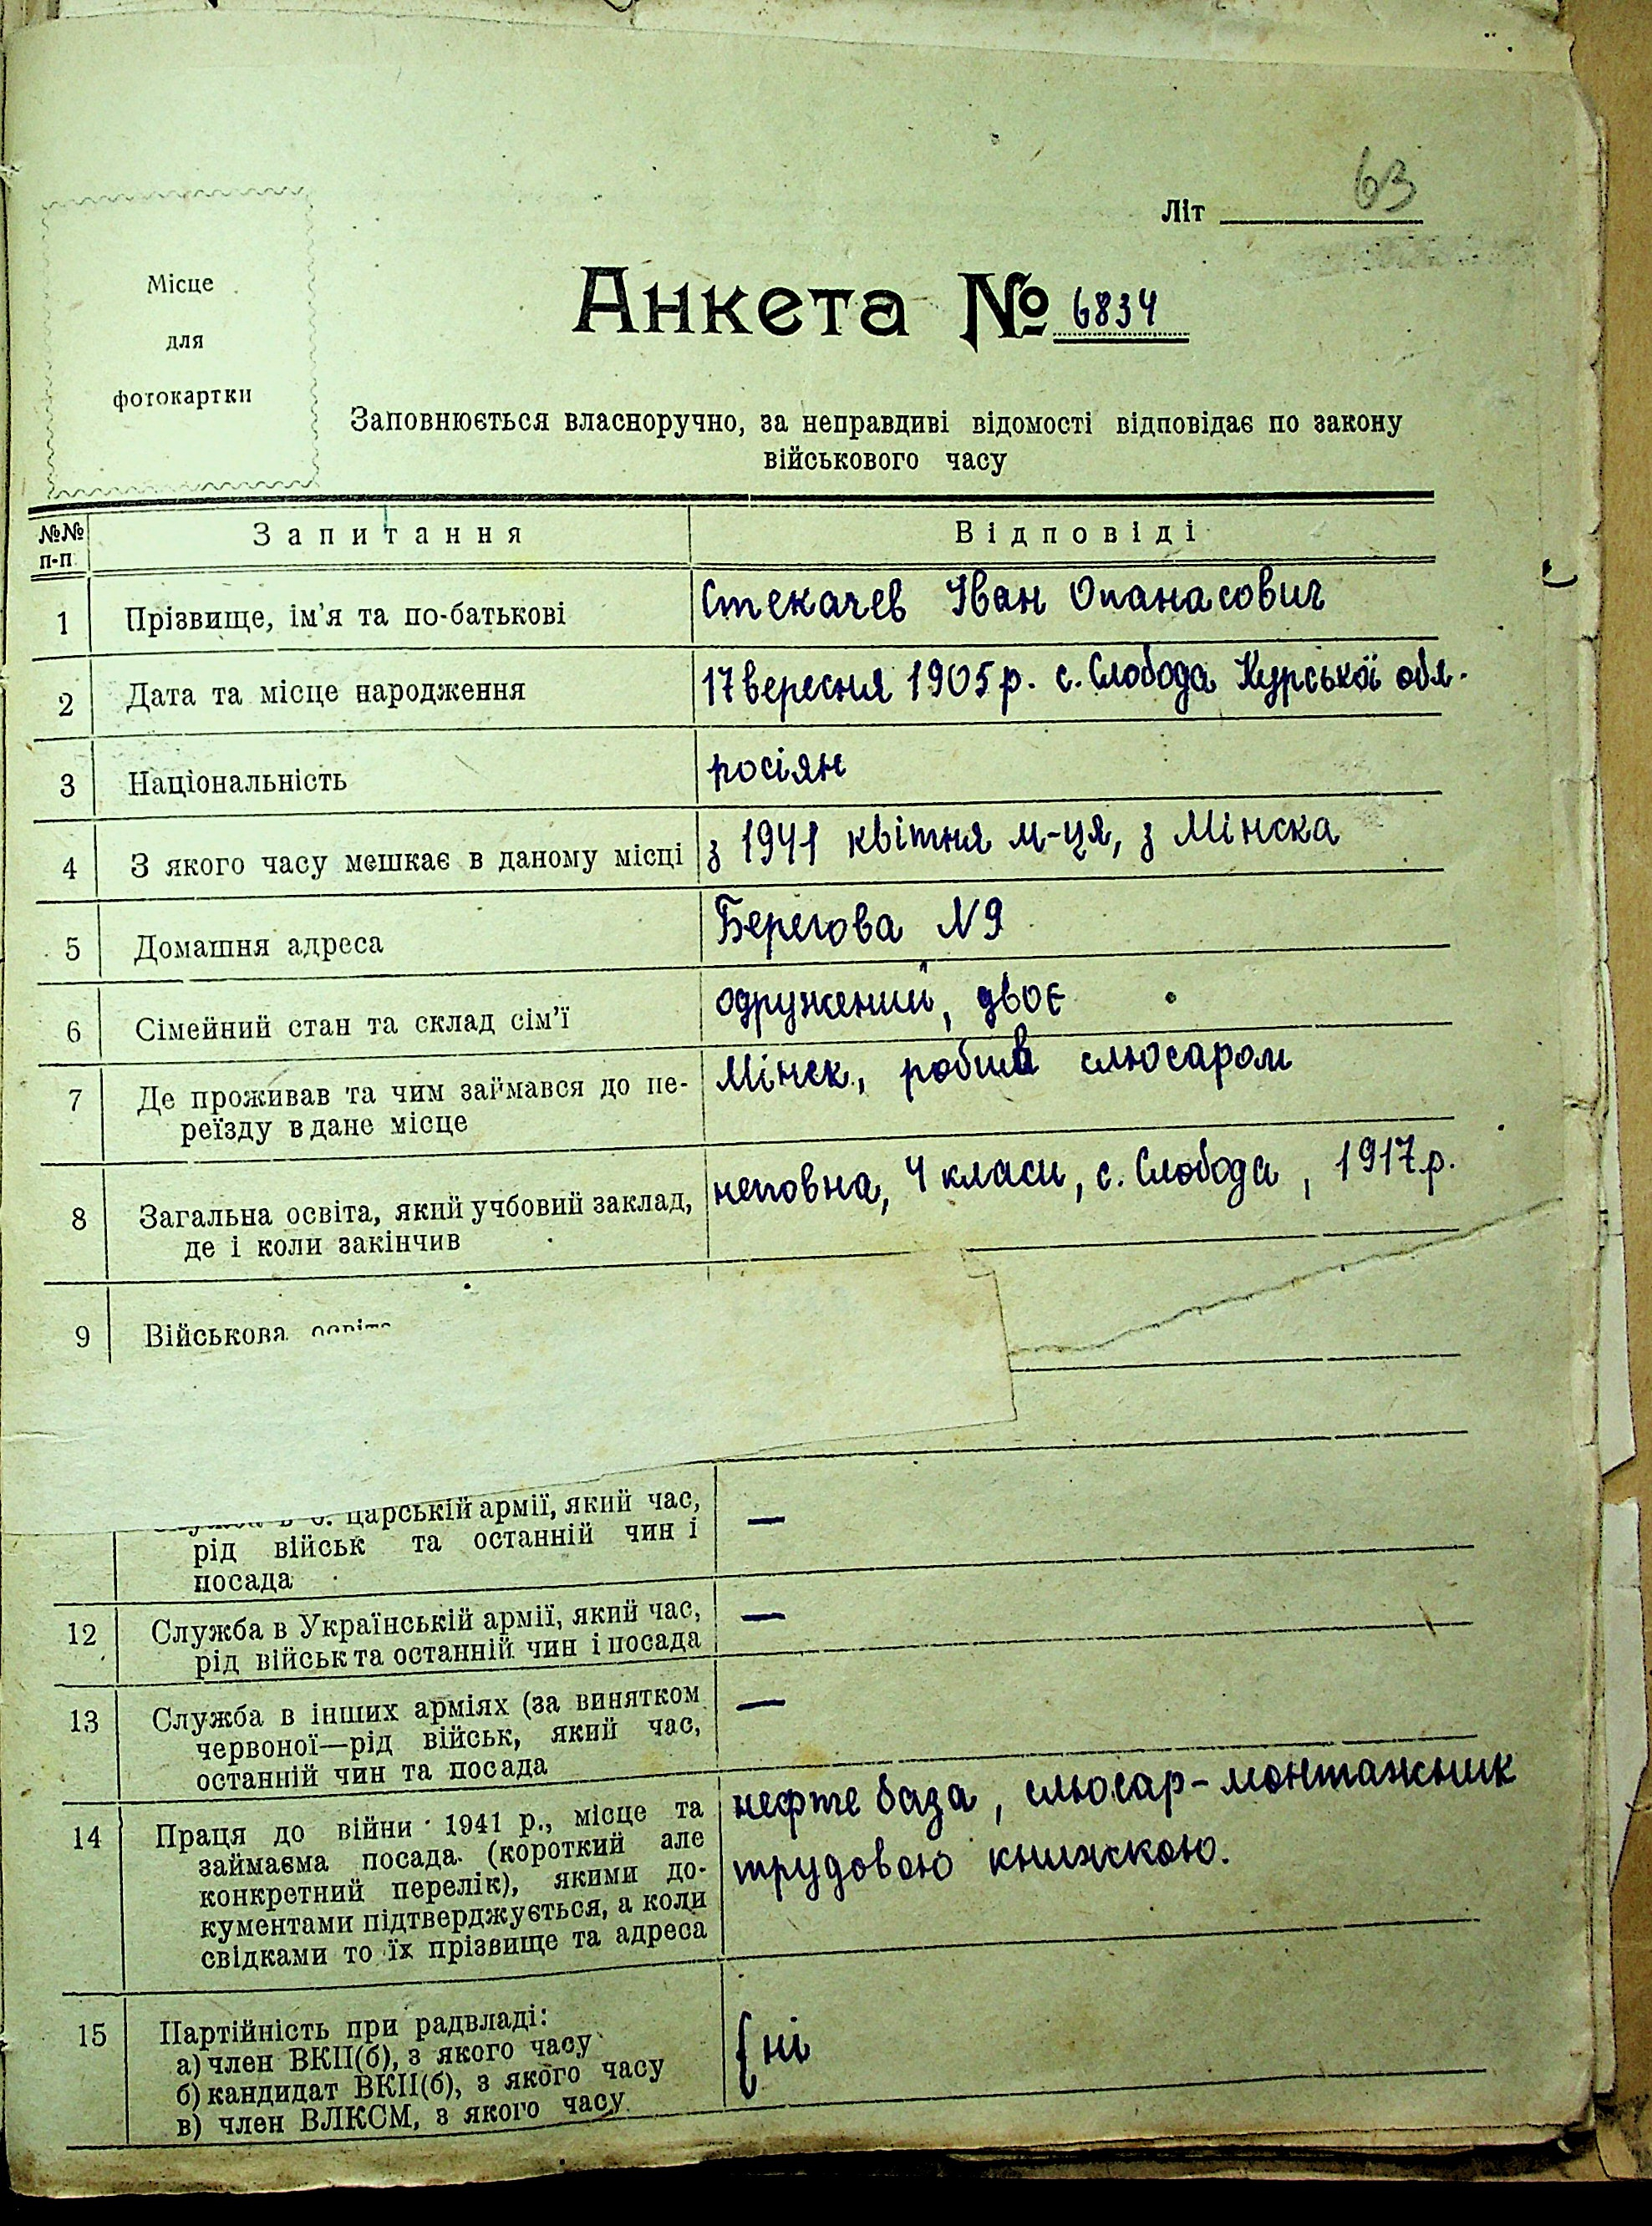 63
Літ
Місце
для
фотокартки
Анкета № 6834
Заповнюється власноручно, за неправдиві відомості відповідає по закону
військового часу
№№ п-п
Запитання
Відповіді
1
Прізвище, ім'я та по-батькові
Стекачев Іван Опанасович
2
Дата та місце народження
17 вересня 1905 р. с. Слобода Курської обл.
3
Національність
росіян
4
З якого часу мешкає в даному місці
з 1941 квітня м-ця, з Мінска
5
Домашня адреса
Берегова N 9
6
Сімейний стан та склад сім'ї
одружений, двоє
7
Де проживав та чим займався до пе-
реїзду в дане місце
Мінск, робив слюсаром
8
Загальна освіта, який учбовий заклад,
де і коли закінчив
неповна, 4 класи, с. Слобода, 1917 р.
9
Військова освіта
царській армії, який час,
рід військ та останній чин і
посада
—
12
Служба в Українській армії, який час,
рід військ та останній чин і посада
—
13
Служба в інших арміях (за винятком
червоної—рід військ, який час,
останній чин та посада
—
14
Праця до війни 1941 р., місце та
займаєма посада (короткий але
конкретний перелік), якими до-
кументами підтверджується, а коли
свідками то їх прізвище та адреса
нефте база, слюсар-монтажник
трудовою книжкою.
15
Партійність при радвладі:
а) член ВКП(б), з якого часу
б) кандидат ВКП(б), з якого часу
в) член ВЛКСМ, з якого часу
{ ні